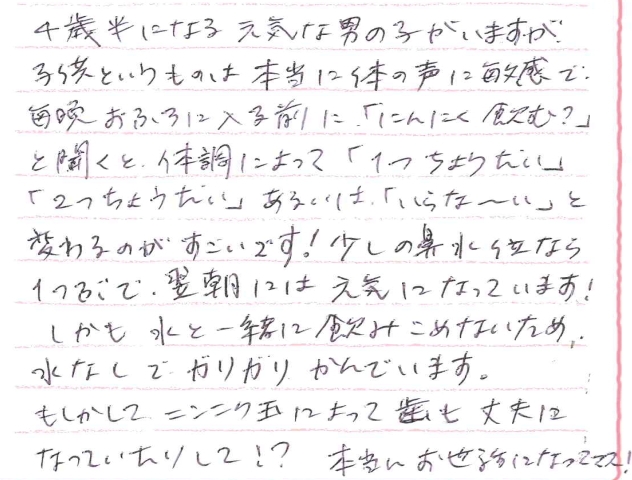 4歳半になる 元気な男の子がいますが
子供というものは 本当に体の声に敏感で
毎晩 おふろに入る前に「にんにく 飲む?」
と聞くと、体調によって「1つちょうだい」
「2つちょうだい」あるいは、「いらな〜い」と
変わるのが すごいです!少しの鼻水位なら
1つぶで、翌朝には 元気になっています!
しかも 水と一緒に飲みこめないため、
水なしで ガリガリ かんでいます。
もしかして ニンニク玉によって 歯も 丈夫に
なっていたりして!? 本当に お世話になってマス!